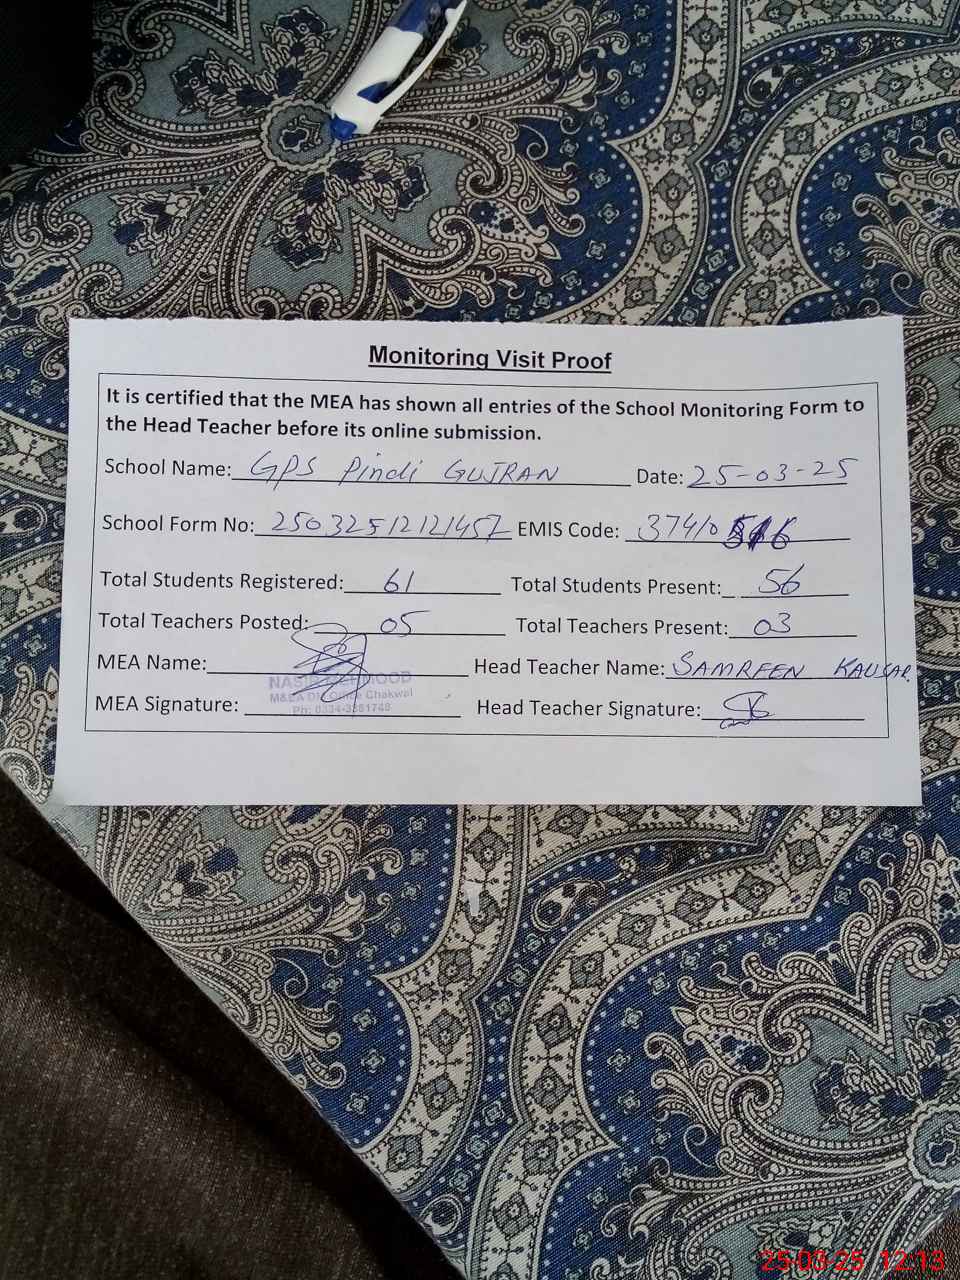 Monitoring Visit Proof
It is certified that the MEA has shown all entries of the School Monitoring Form to
the Head Teacher before its online submission.
School Name: GPS Pindi GUJRAN Date: 25-03-25
School Form No: 25032512121457 EMIS Code: 37410
Total Students Registered: 61 Total Students Present: 56
Total Teachers Posted: 05 Total Teachers Present: 03
MEA Name: Head Teacher Name: SAMREEN KAUSAR.
NASIR MEHMOOD
M&EA Office Chakwal
MEA Signature: Head Teacher Signature:
Ph: 0334-
25-03-25 12:13